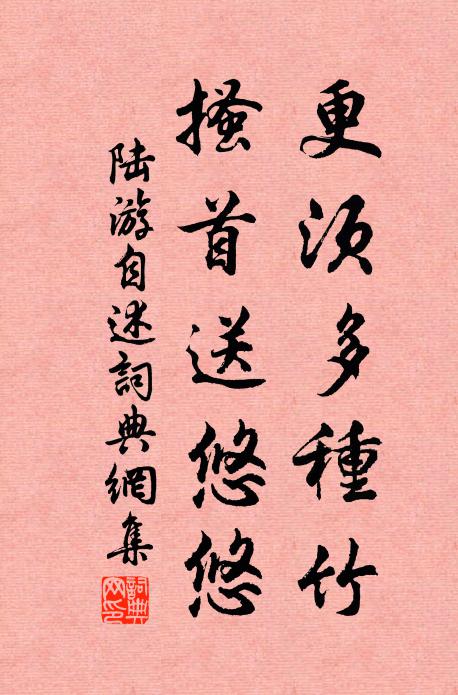 更須多種竹
搔首送悠悠
陸游自述詞典網集
詞典
网印